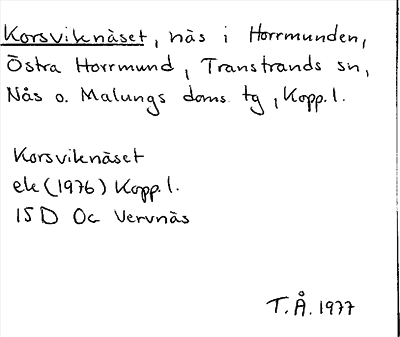 Korsviknäset, näs i Horrmunden,
Östra Horrmund, Transtrands sn,
Nås o. Malungs doms. tg, Kopp. l.
Korsviknäset
ek (1976) Kopp. l.
15 D 0c Vervnäs
T.Å. 1977